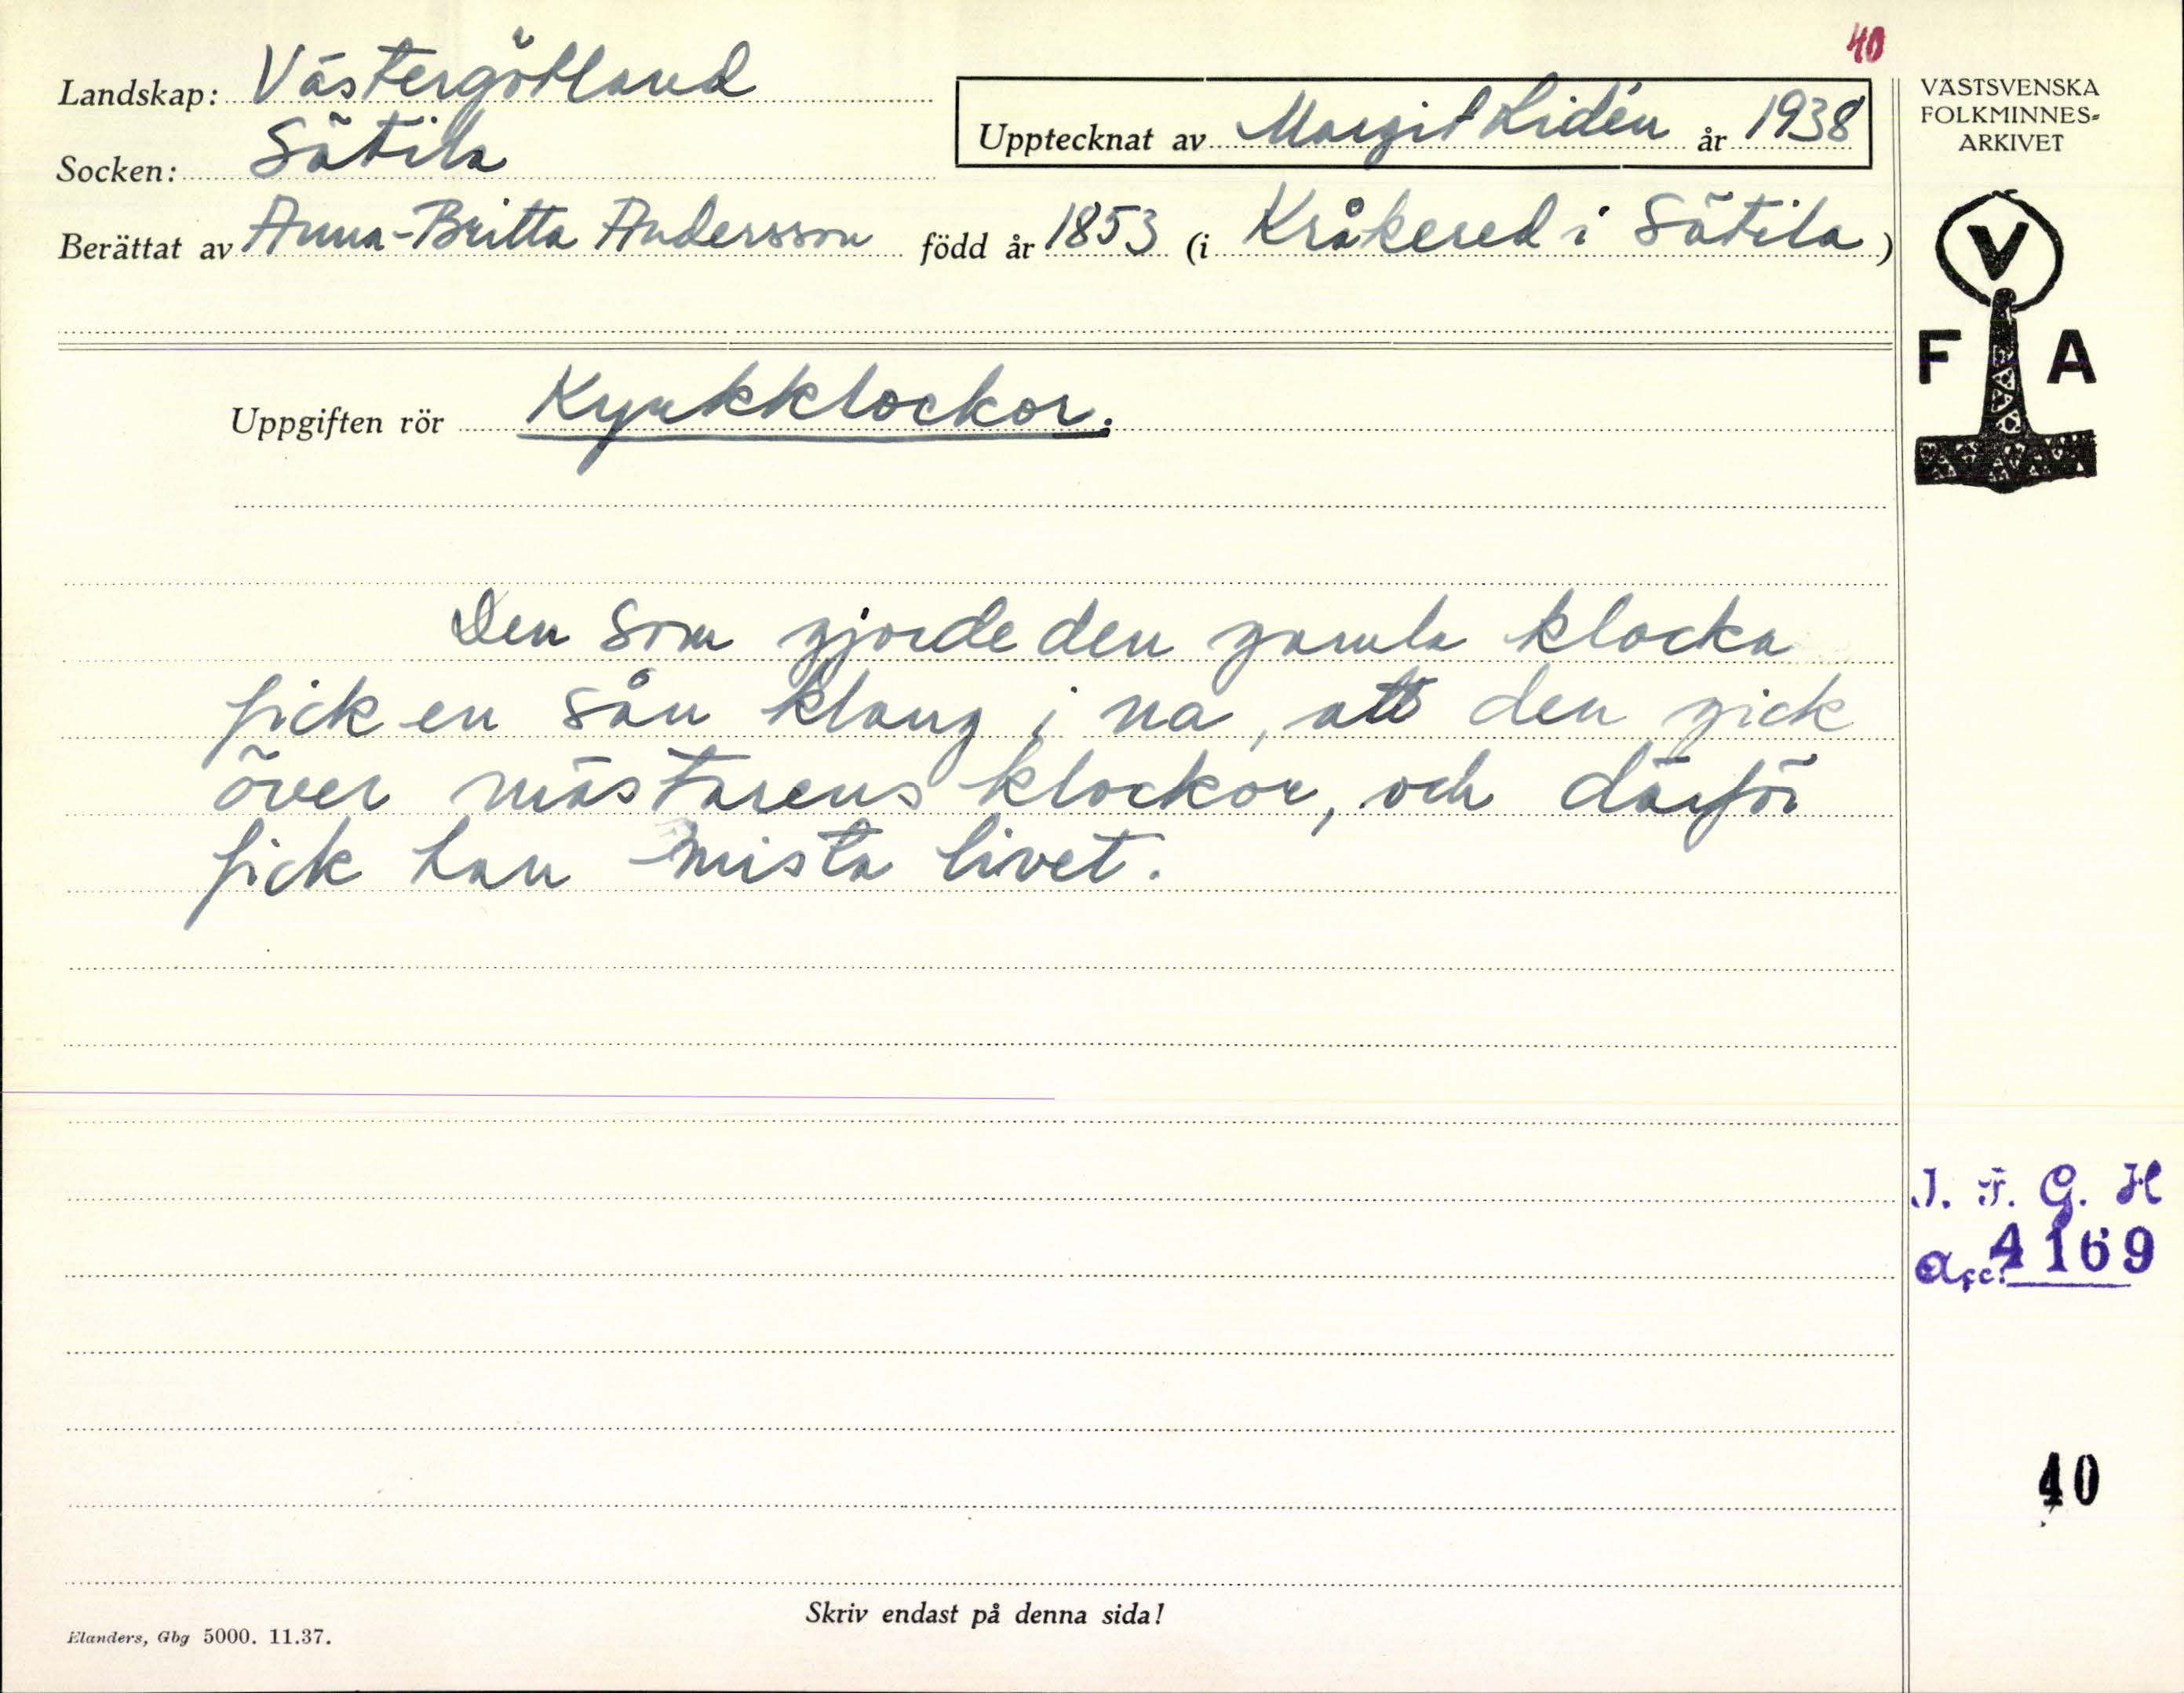 40
Landskap: Västergötland
Upptecknat av Margit Lidén år 1938
Socken: Sätila
Berättat av Anna-Britta Andersson född år 1853 (i Kråkered i Sätila)
VÄSTSVENSKA
FOLKMINNES=
ARKIVET
V
F A
Uppgiften rör Kyrkklockor.
Den som gjorde den gamla klocka
fick en sån klang i na, att den gick
över mästarens klockor, och därför
fick han mista livet.
I. F. G. H
acc. 4169
40
Skriv endast på denna sida!
Elanders, Gbg 5000. 11.37.